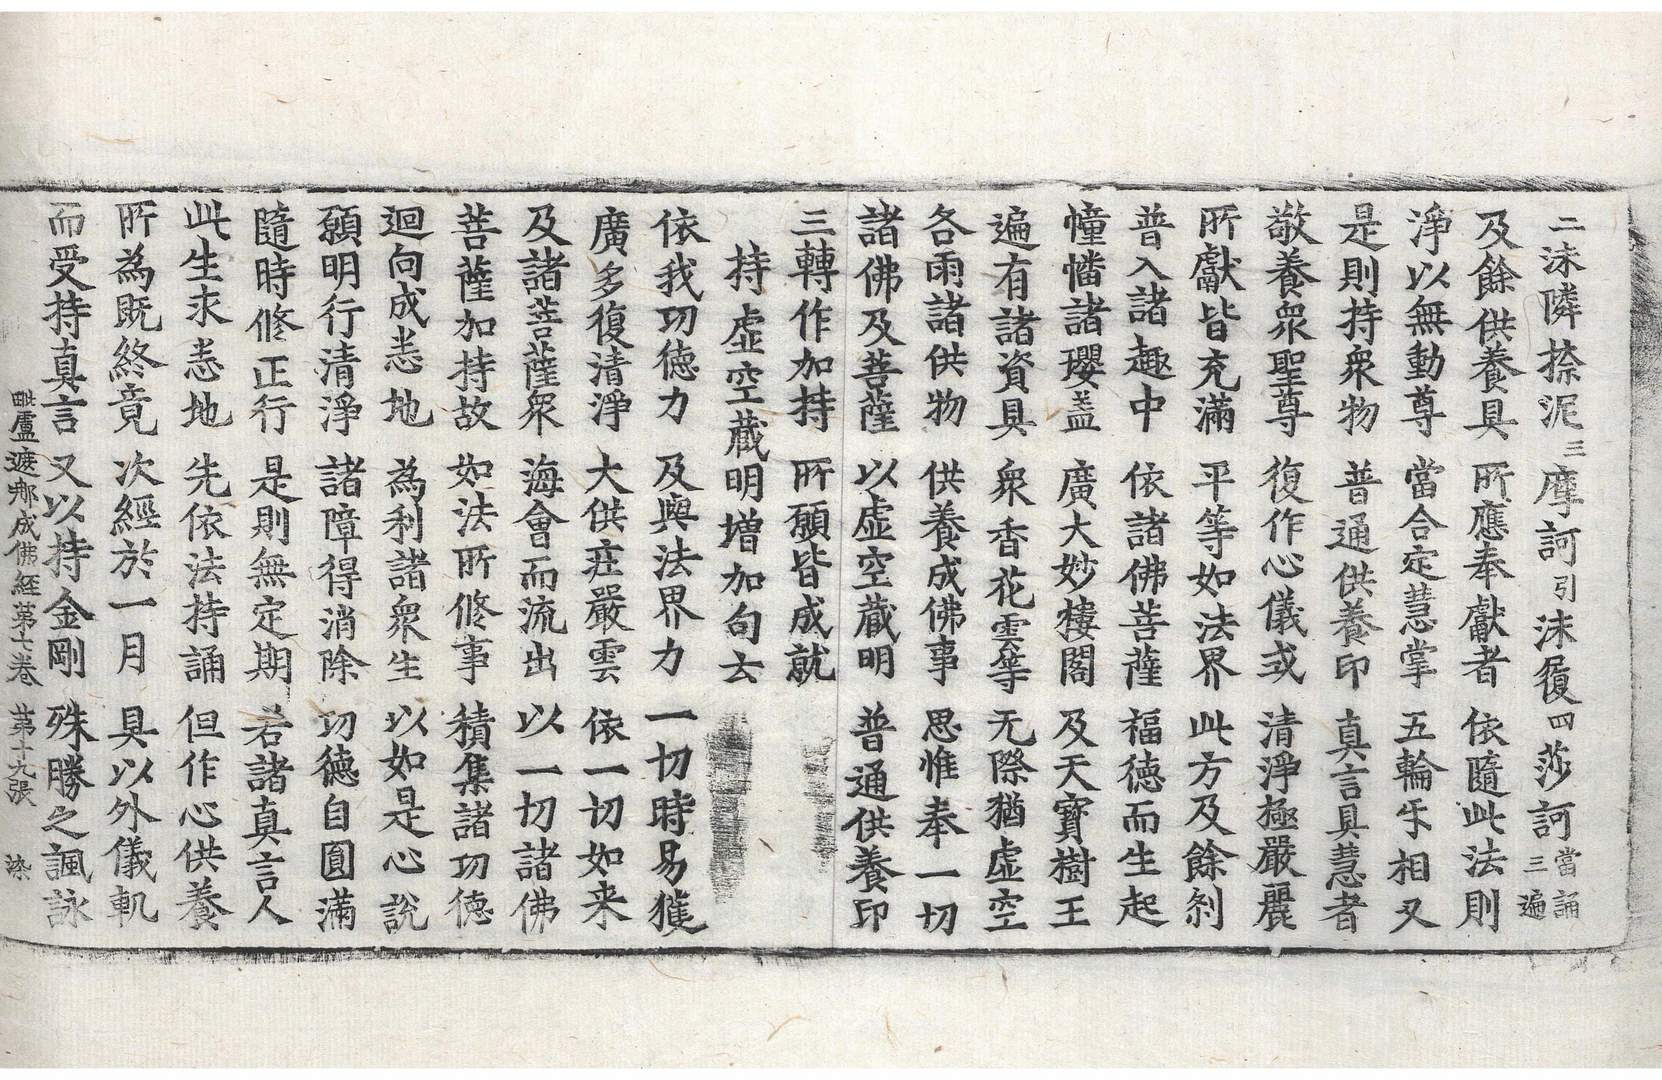 二沬隣捺泥三摩訶引沬履四莎訶當誦三遍
及餘供養具 所應奉獻者 依隨此法則
淨以無動尊 當合定慧掌 五輪㸦相叉
是則持衆物 普通供養印 真言具慧者
敬養衆聖尊 復作心儀式 清淨極嚴麗
所獻皆充滿 平等如法界 此方及餘刹
普入諸趣中 依諸佛菩薩 福德而生起
幢幡諸瓔盖 廣大妙樓閣 及天寶樹王
遍有諸資具 衆香花雲等 无際猶虛空
各雨諸供物 供養成佛事 思惟奉一切
諸佛及菩薩 以虛空藏明 普通供養印
三轉作加持 所願皆成就
持虛空藏明增加句云
依我功德力 及與法界力 一切時易獲
廣多復清淨 大供莊嚴雲 依一切如来
及諸菩薩衆 海會而流出 以一切諸佛
菩薩加持故 如法所修事 積集諸功德
迴向成悉地 為利諸衆生 以如是心說
願明行清淨 諸障得消除 功德自圓滿
隨時修正行 是則無定期 若諸真言人
此生求悉地 先依法持誦 但作心供養
所為既終竟 次經於一月 具以外儀軌
而受持真言 又以持金剛 殊勝之諷詠
毗盧遮那成佛經第七卷 第十九張 染